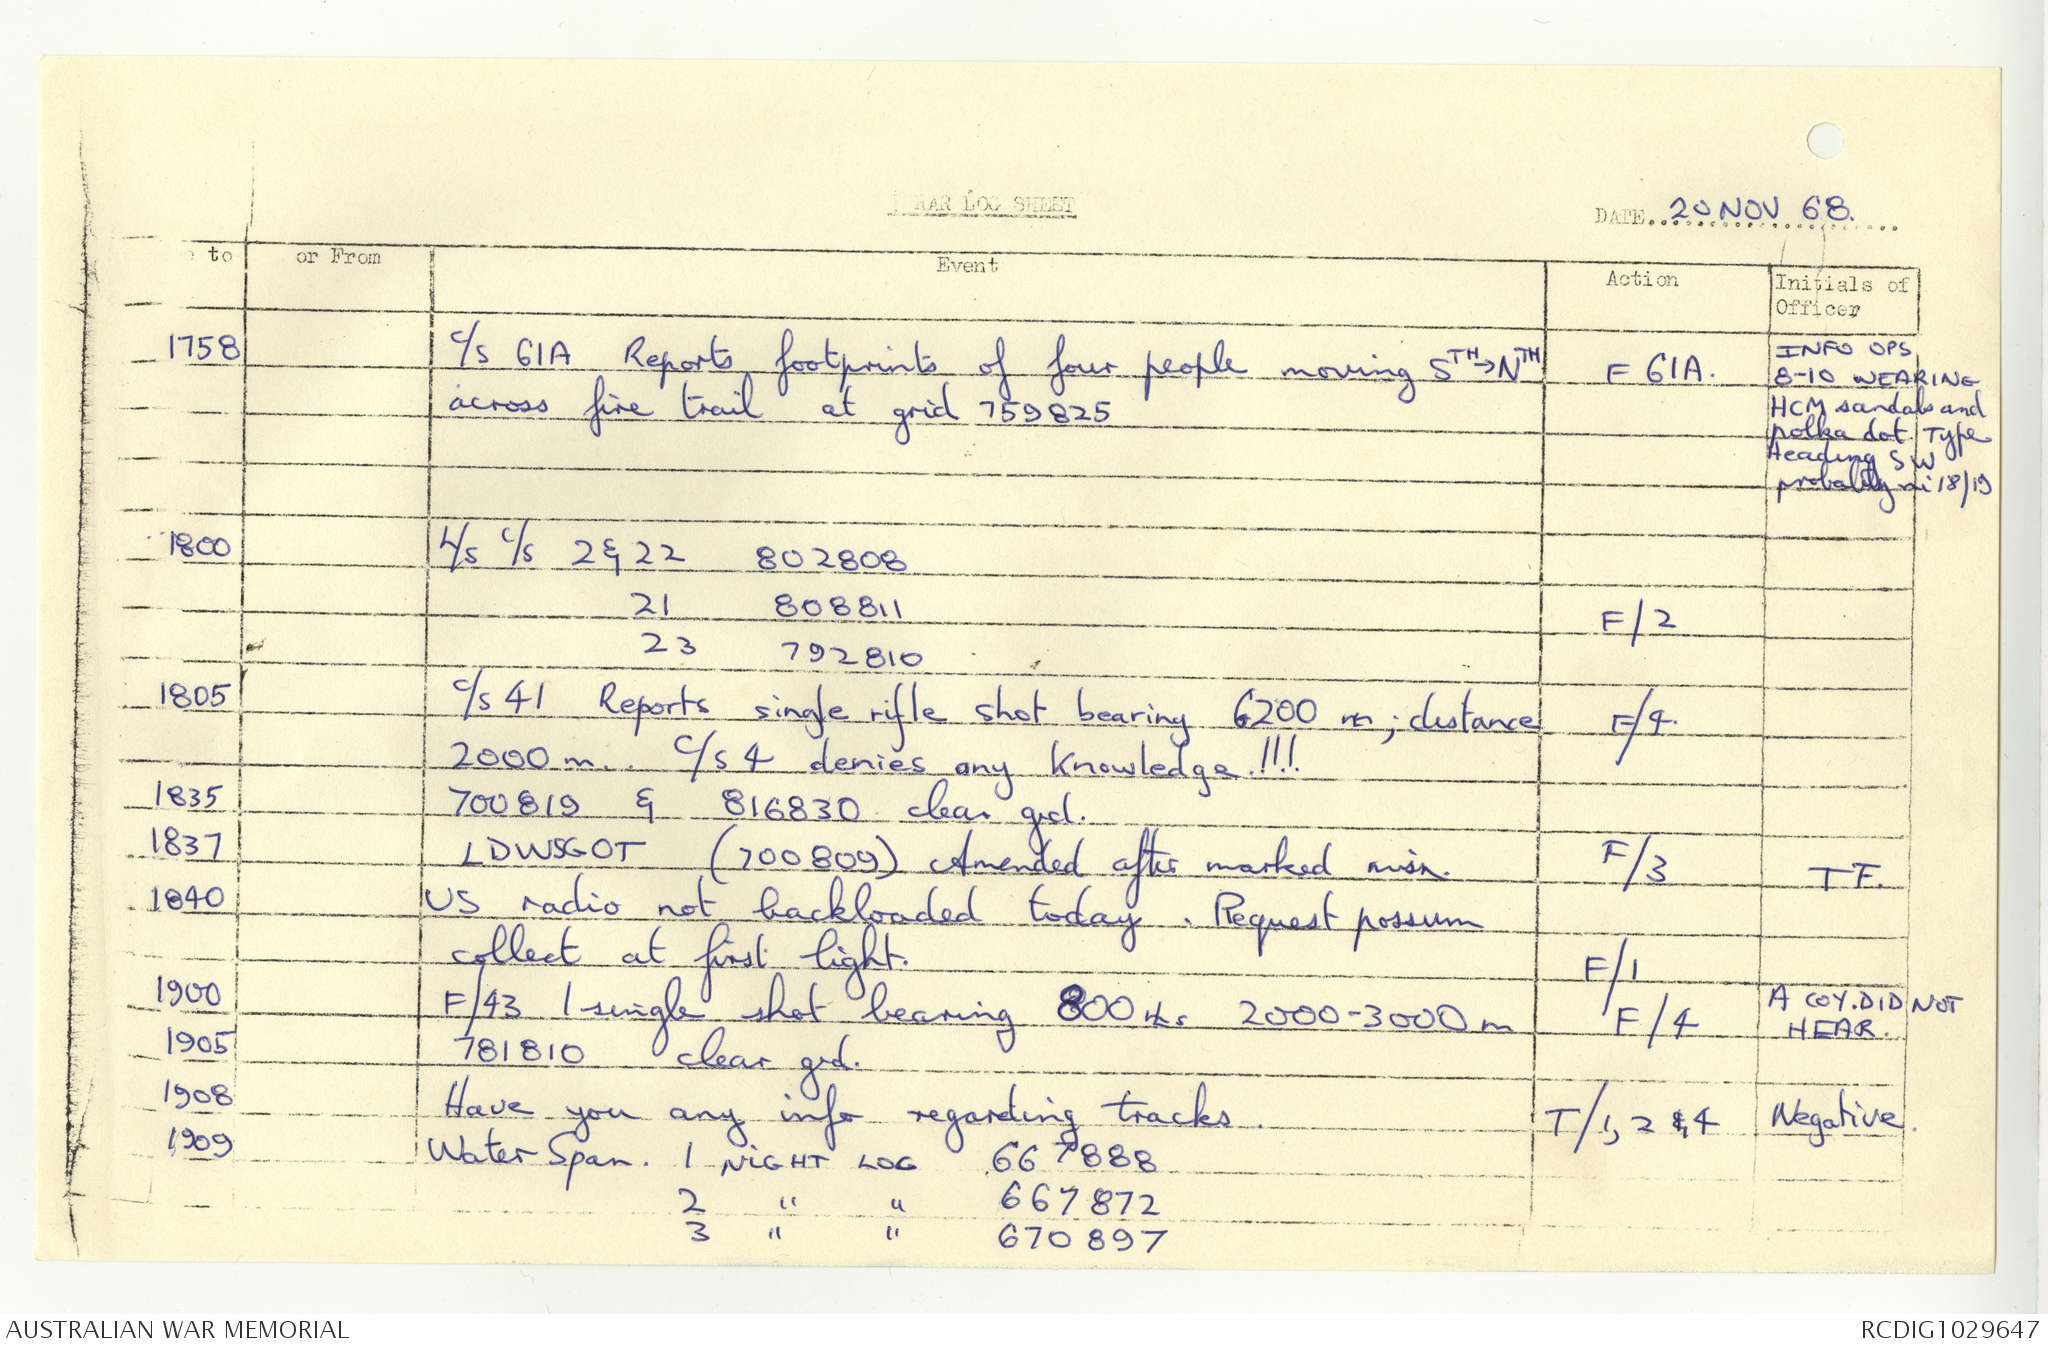 RAR LOG SHEET
DATE 20 NOV 68.
to or From Event Action Initials of
Officer
1758 c/s 61A Reports footprints of four people moving STH→NTH F 61A. INFO OPS
across fire trail at grid 759825 8-10 WEARING
HCM sandals and
polka dot Type
Heading SW
probably 18/19
1800 L/s c/s 2 & 22 802808
21 808811 F/2
23 792810
1805 c/s 41 Reports single rifle shot bearing 6200 m; distance F/4.
2000 m.. C/S 4 denies any knowledge.!!!
1835 700819 & 816830 clear grd.
1837 LDWSGOT (700809) Amended after marked misn. F/3 TF.
1840 US radio not backloaded today. Request possum
collect at first light. F/1
1900 F/43 1 single shot bearing 800 2000-3000 m F/4 A COY. DID NOT
HEAR.
1905 781810 clear grd.
1908 Have you any info regarding tracks. T/1, 2 & 4 Negative.
1909 Water Span. 1 NIGHT LOG 667888
2 " " 667872
3 " " 670897
AUSTRALIAN WAR MEMORIAL RCDIG1029647